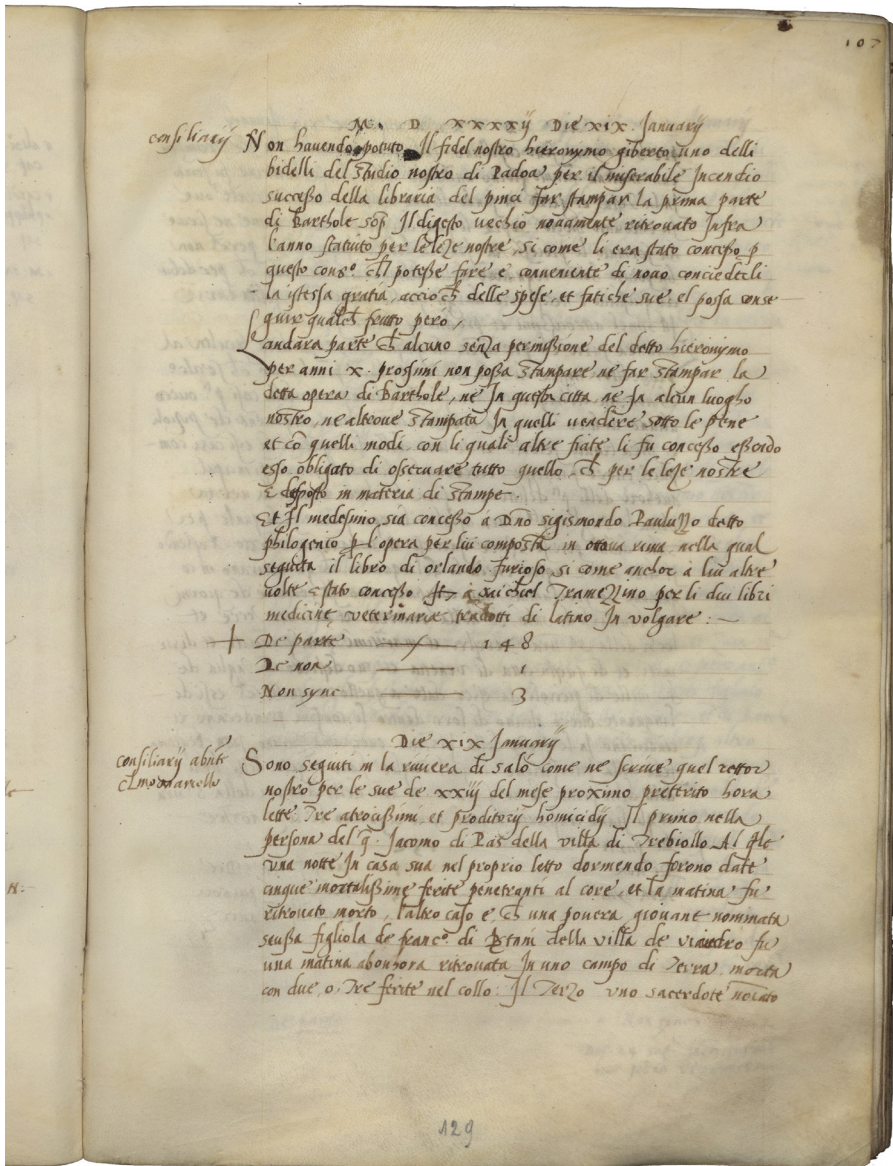 107
M. D XXXXij Die xix Ianuarij
consiliarij Non havendo potuto Il fidel nostro hieronymo giberto uno delli
bidelli del studio nostro di Padoa per il miserabile Incendio
successo della libraria del far stampar la prima parte
di Barthole sop Il digesto uechio novamente ritrovato Infra
l'anno statuto per le leze nostre, si come li era stato concesso p
questo cons.o ch'l potesse fare e conveniente di novo conciederli
la istessa gratia, accio ch delle spese, et fatiche sue el possa conse
quir qualch frutto pero,
Landara parte ch alcuno senza permissione del detto hieronymo
per anni x. prossimi non possa stampare, ne far stampar la
detta opera di Barthole, ne In questa citta, ne In alcun luogho
nostro, ne altrove stampata In quelli vendere sotto le pene
et cō quelli modi, con li quali altre fiate li fu concesso essendo
esso obligato di osservare tutto quello, ch per le leze nostre
E disposto in materia di stampe.
Et Il medesimo sia concesso a Dno sigismondo Pauluzzo detto
philogenio p l'opera per lui composta in ottava rima, nella qual
seguita il libro di orlando furioso si come anchor à lui altre
volte è stato concesso Et à Michiel Tramezzino per li dui libri
medicine veterinariæ tradotti di latino In volgare: ~
+ De parte 148
De non 1
Non sync 3
Die xix Ianuarij
consiliarij absnte
Cl. mo Sono seguiti in la riviera di salò come ne scrive quel rettor
nostro per le sue de xxiij del mese proximo preterito hora
lette. Tre atrocissimi, et proditorij homicidij Il primo nella
persona del q. Iacomo di della villa di Trebiollo Al qle
una notte In casa sua nel proprio letto dormendo forono date
cinque mortalissime ferite penetranti al core, et la matina fu
ritrovato morto, l'altro caso è, ch una povera giovane nominata
figliola de franc.o di della villa de fu
una matina abonhora ritrovata In uno campo di Terra morta
con due, o, Tre ferite nel collo. Il Terzo uno sacerdote noiato
129